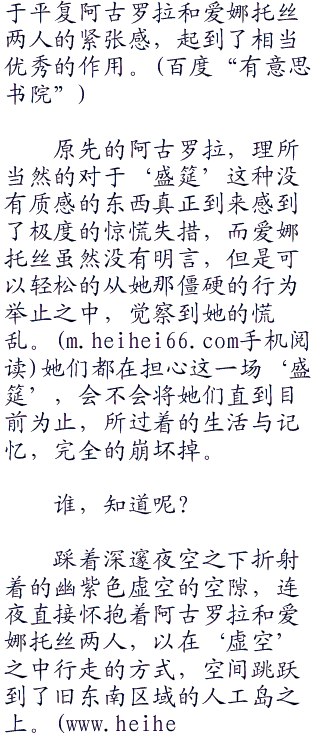 于平复阿古罗拉和爱娜托丝
两人的紧张感，起到了相当
优秀的作用。(百度“有意思
书院”)
原先的阿古罗拉，理所
当然的对于‘盛筵’这种没
有质感的东西真正到来感到
了极度的惊慌失措，而爱娜
托丝虽然没有明言，但是可
以轻松的从她那僵硬的行为
举止之中，觉察到她的慌
乱。(m.heihei66.com手机阅
读)她们都在担心这一场‘盛
筵’，会不会将她们直到目
前为止，所过着的生活与记
忆，完全的崩坏掉。
谁，知道呢？
踩着深邃夜空之下折射
着的幽紫色虚空的空隙，连
夜直接怀抱着阿古罗拉和爱
娜托丝两人，以在‘虚空’
之中行走的方式，空间跳跃
到了旧东南区域的人工岛之
上。(www.heihe